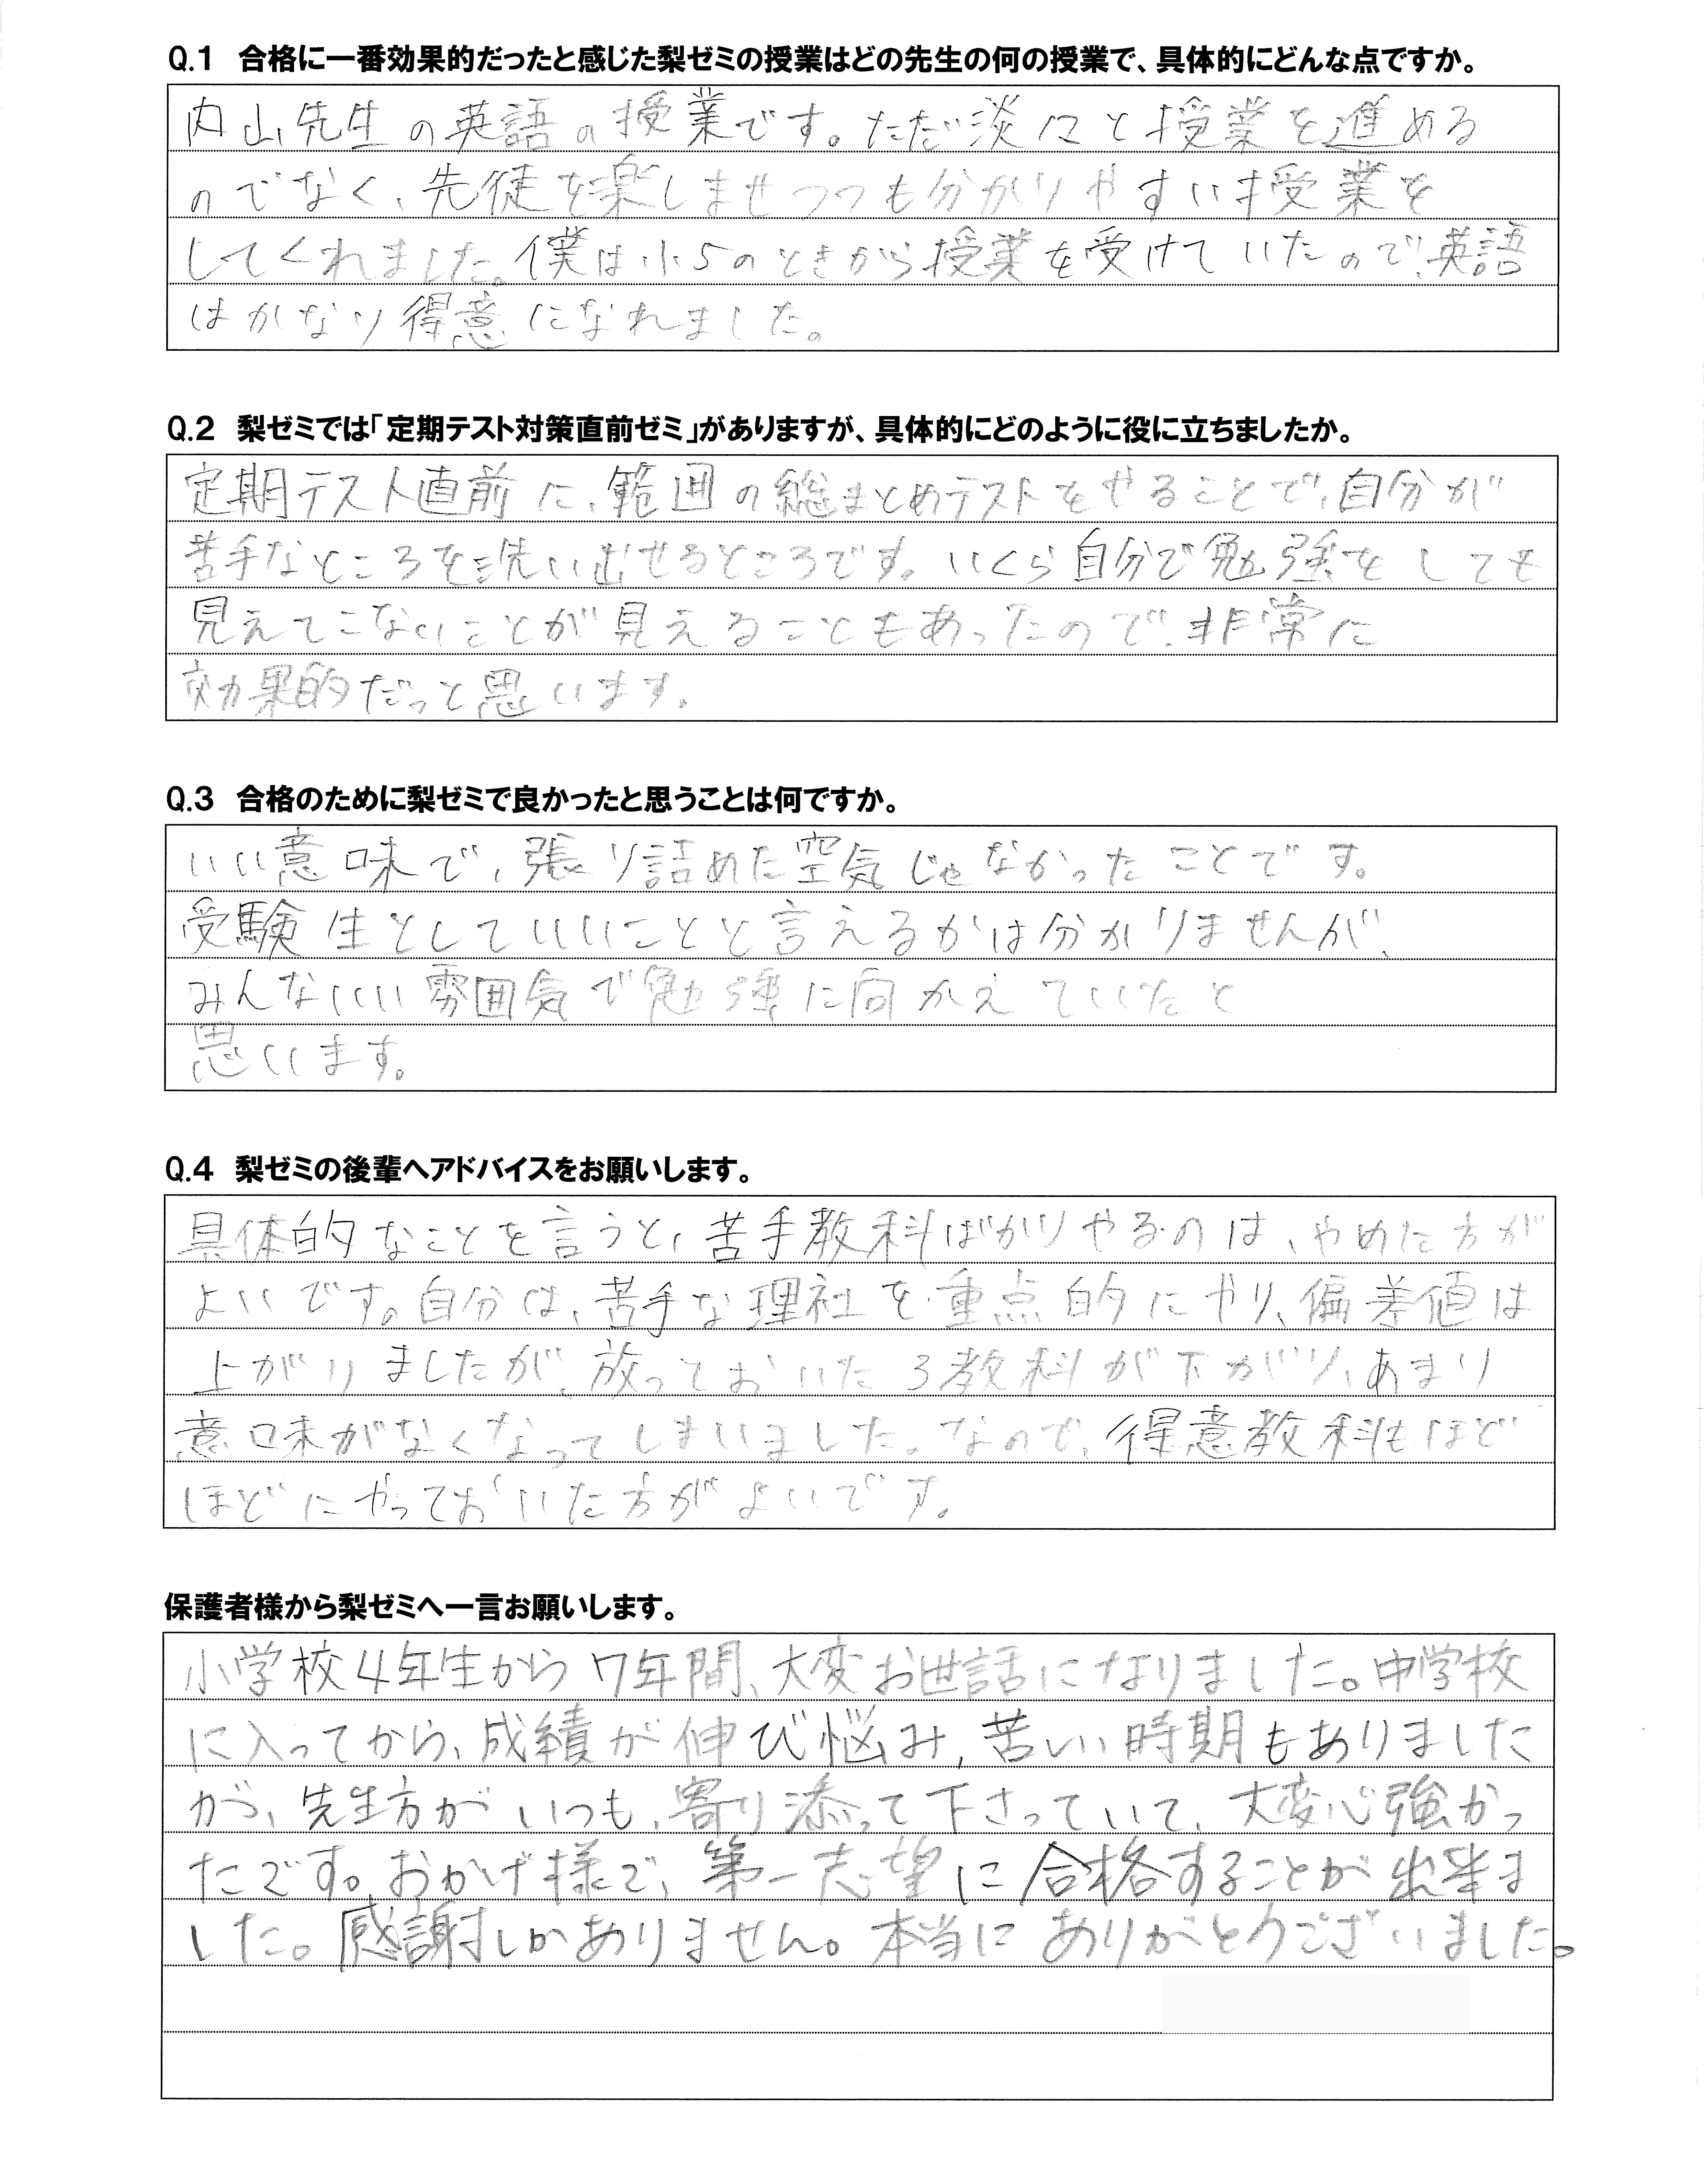 Q.1 合格に一番効果的だったと感じた梨ゼミの授業はどの先生の何の授業で、具体的にどんな点ですか。
内山先生の英語の授業です。ただ淡々と授業を進める
のでなく、先徒を楽しませつつも分かりやすい授業を
してくれました。僕は小5のときから授業を受けていたので、英語
はかなり得意になれました。
Q.2 梨ゼミでは「定期テスト対策直前ゼミ」がありますが、具体的にどのように役に立ちましたか。
定期テスト直前に、範囲の総まとめテストをやることで、自分が
苦手なところを洗い出せるところです。いくら自分で勉強をしても
見えてこないことが見えることもあったので、非常に
効果的だっと思います。
Q.3 合格のために梨ゼミで良かったと思うことは何ですか。
いい意味で、張り詰めた空気じゃなかったことです。
受験生としていいことと言えるかは分かりませんが、
みんないい雰囲気で勉強に向かえていたと
思います。
Q.4 梨ゼミの後輩へアドバイスをお願いします。
具体的なことを言うと、苦手教科ばかりやるのは、やめた方が
よいです。自分は、苦手な理社を重点的にやり、偏差値は
上がりましたが、放っておいた3教科が下がり、あまり
意味がなくなってしまいました。なので、得意教科もほど
ほどにやっておいた方がよいです。
保護者様から梨ゼミへ一言お願いします。
小学校4年生から7年間、大変お世話になりました。中学校
に入ってから、成績が伸び悩み、苦しい時期もありました
が、先生方がいつも、寄り添って下さっていて、大変心強かっ
たです。おかげ様で、第一志望に合格することが出来ま
した。感謝しかありません。本当にありがとうございました。